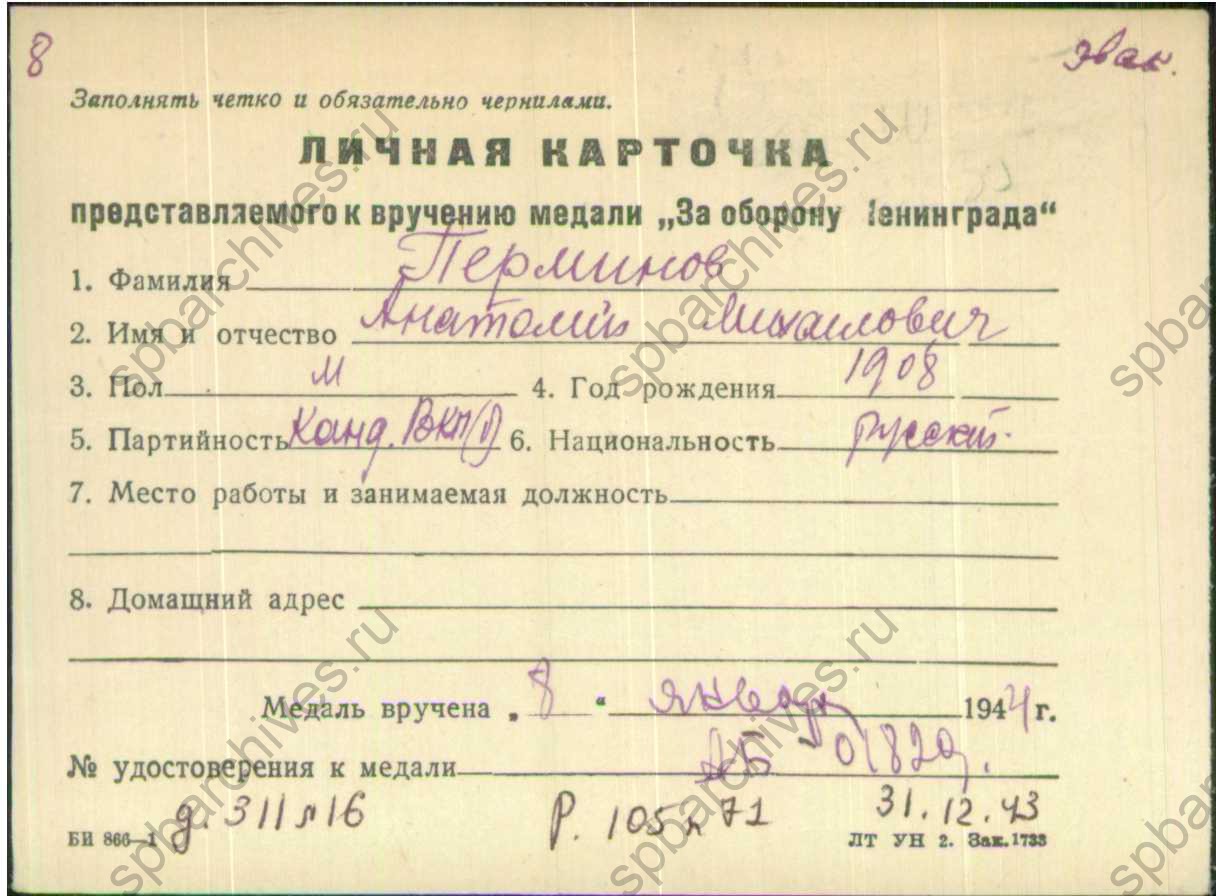 8 эвак.
Заполнять четко и обязательно чернилами.
ЛИЧНАЯ КАРТОЧКА
представляемого к вручению медали „За оборону Ленинграда“
1. Фамилия Перминов
2. Имя и отчество Анатолий Михайлович
3. Пол М 4. Год рождения 1908
5. Партийность Канд. ВКП(б) 6. Национальность русский
7. Место работы и занимаемая должность
8. Домашний адрес
Медаль вручена „8“ января 1944 г.
№ удостоверения к медали АБ 01829.
д. 311 л 16 Р. 105 л 71 31.12.43
БИ 866—1 ЛТ УН 2. Зак. 1733
spbarchives.ru